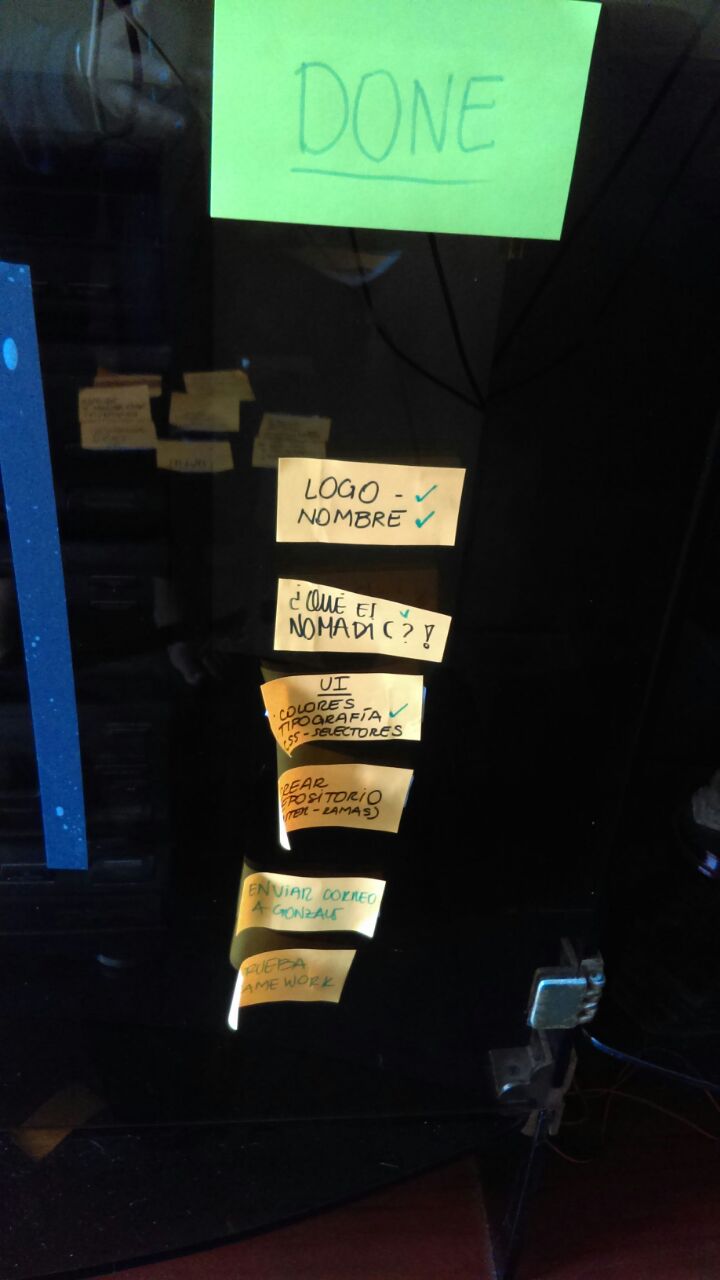 DONE
LOGO - ✓
NOMBRE ✓
¿QUÉ EI ✓
NOMADIC?!
UI
· COLORES
TIPOGRAFÍA ✓
CSS - SELECTORES
REAR
EPOSITORIO
ITER - RAMAS)
ENVIAR CORREO
A GONZALO
RUEBA
AMEWORK